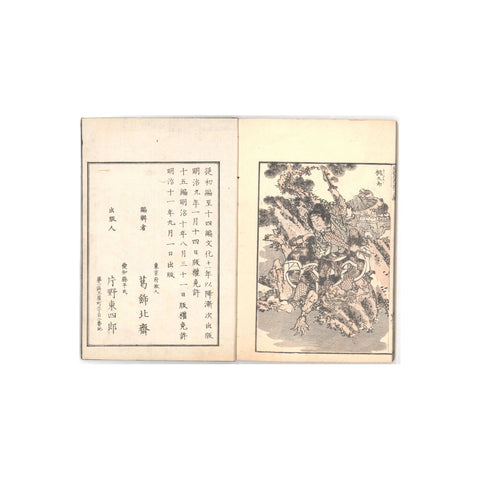 從初編至十四編文化十一年以降漸次出版
明治九年一月十四日版權免許
十五編明治十年八月三十一日版權免許
明治十一年九月一日出版
編輯者
東京府故人
葛飾北齋
出版人
愛知縣平民
片野東四郎